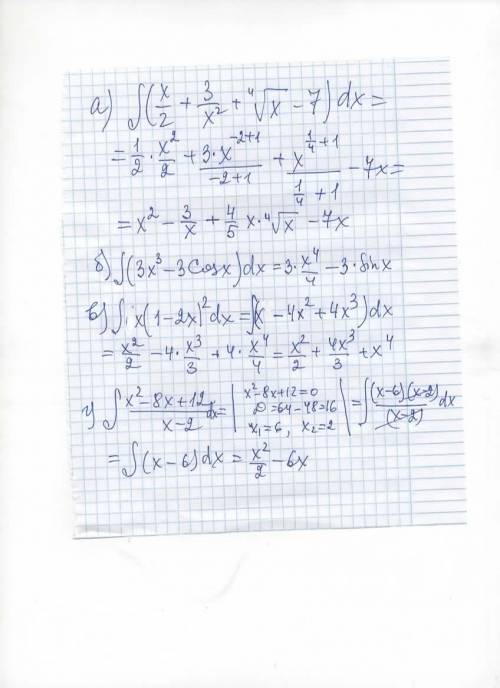 а) ∫(x/2 + 3/x² + ⁴√x − 7) dx =
= 1/2 · x²/2 + 3·x⁻²⁺¹/(−2+1) + x^(1/4+1)/(1/4+1) − 7x =
= x² − 3/x + 4/5 x · ⁴√x − 7x
б) ∫(3x³ − 3Cosx) dx = 3 · x⁴/4 − 3 · Sinx
в) ∫ x(1−2x)² dx = ∫(x − 4x² + 4x³) dx
= x²/2 − 4 · x³/3 + 4 · x⁴/4 = x²/2 + 4x³/3 + x⁴
г) ∫ (x² − 8x + 12)/(x−2) dx = | x² − 8x + 12 = 0
D = 64 − 48 = 16
x₁ = 6, x₂ = 2 | = ∫ (x−6)(x−2)/(x−2) dx
= ∫ (x − 6) dx = x²/2 − 6x